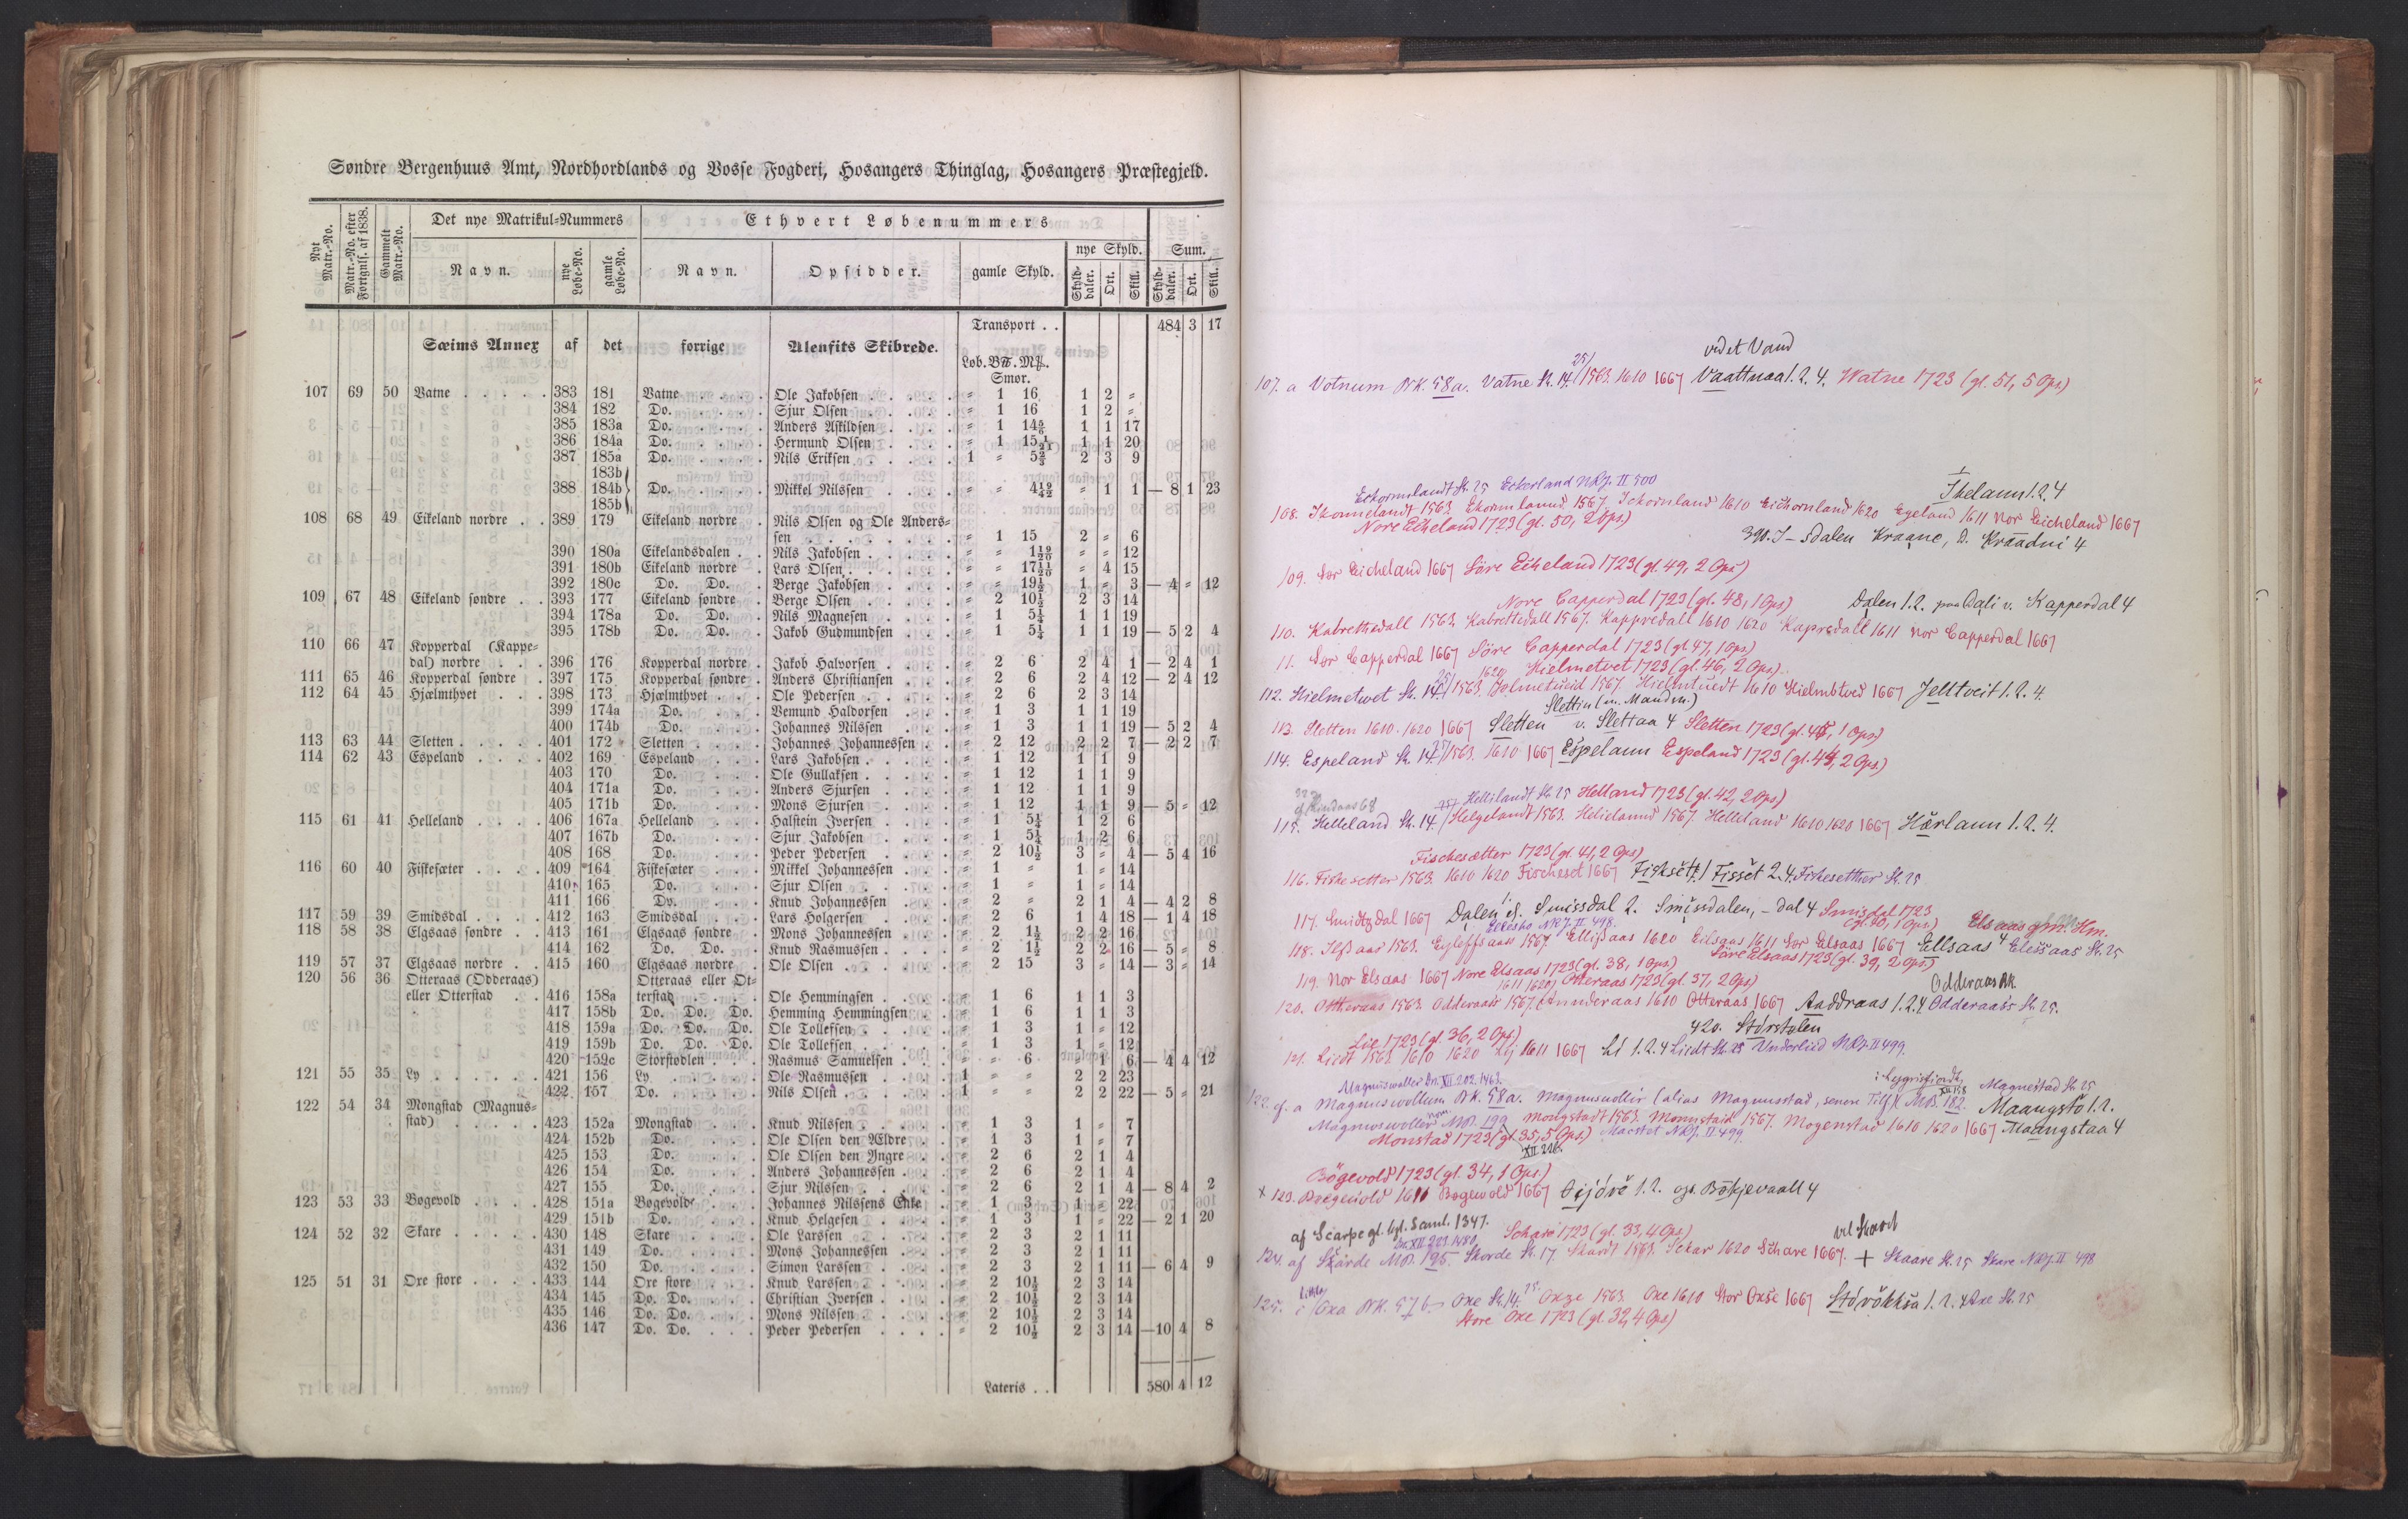 Søndre Bergenhuus Amt, Nordhordlands og Vosse Fogderi, Hosangers Thinglag, Hosangers Præstegjeld.
Nyt Matr.-No. Matr.-No. efter Fortgnls. af 1838. Gammelt Matr.-No. Det nye Matrikul-Nummers Ethvert Løbenummers
Navn. nye Løbe-No. gamle Løbe-No. Navn. Opsidder. gamle Skyld. nye Skyld. Sum.
Skylddaler. Ort. Skill. Skylddaler. Ort. Skill.
Transport . . 484 3 17
Sæims Annex af det forrige Alenfits Skibrede.
Løb. B℔. M℔.
Smør.
107 69 50 Vatne . . . . . 383 181 Vatne . . . . Ole Jakobsen . . . . . „ 1 16 1 2 „
384 182 Do. . . . . Sjur Olsen . . . . . „ 1 16 1 2 „
385 183a Do. . . . . Anders Askildsen . . . . „ 1 14⅚ 1 1 17
386 184a Do. . . . . Hermund Olsen . . . . „ 1 15 1 1 20
387 185a Do. . . . . Nils Eriksen . . . . . 1 „ 5⅔ 2 3 9
183b
388 184b Do. . . . . Mikkel Nilssen . . . . „ „ 4 19/42 „ 1 1 — 8 1 23
185b
108 68 49 Eikeland nordre . . 389 179 Eikeland nordre . Nils Olsen og Ole Anders-
sen . . . . . . . „ 1 15 2 „ 6
390 180a Eikelandsdalen . . Nils Jakobsen . . . . . „ „ 1 19/20 „ „ 12
391 180b Eikeland nordre . Lars Olsen . . . . . „ „ 17 11/20 „ 4 15
392 180c Do. Do. . Berge Jakobsen . . . . „ „ 19½ 1 „ 3 — 4 „ 12
109 67 48 Eikeland søndre . . 393 177 Eikeland søndre . Berge Olsen . . . . . „ 2 10½ 2 3 14
394 178a Do. Do. . Nils Magnesen . . . . „ 1 5¼ 1 1 19
395 178b Do. Do. . Jakob Gudmundsen . . . „ 1 5¼ 1 1 19 — 5 2 4
110 66 47 Kopperdal (Kappe-
dal) nordre . . . 396 176 Kopperdal nordre . Jakob Halvorsen . . . . „ 2 6 2 4 1 — 2 4 1
111 65 46 Kopperdal søndre . 397 175 Kopperdal søndre . Anders Christiansen . . . „ 2 6 2 4 12 — 2 4 12
112 64 45 Hjælmthvet . . . 398 173 Hjælmthvet . . . Ole Pedersen . . . . . „ 2 6 2 3 14
399 174a Do. . . . Vemund Haldorsen . . . „ 1 3 1 1 19
400 174b Do. . . . Johannes Nilssen . . . „ 1 3 1 1 19 — 5 2 4
113 63 44 Sletten . . . . . 401 172 Sletten . . . . Johannes Johannessen . . . „ 2 12 2 2 7 — 2 2 7
114 62 43 Espeland . . . . 402 169 Espeland . . . Lars Jakobsen . . . . . „ 1 12 1 1 9
403 170 Do. . . . Ole Gullaksen . . . . . „ 1 12 1 1 9
404 171a Do. . . . Anders Sjursen . . . . „ 1 12 1 1 9
405 171b Do. . . . Mons Sjursen . . . . . „ 1 12 1 1 9 — 5 „ 12
115 61 41 Helleland . . . . 406 167a Helleland . . . Halstein Iversen . . . . „ 1 5¼ 1 2 6
407 167b Do. . . . Sjur Jakobsen . . . . . „ 1 5¼ 1 2 6
408 168 Do. . . . Peder Pedersen . . . . „ 2 10½ 3 „ 4 — 5 4 16
116 60 40 Fiskesæter . . . . 409 164 Fiskesæter . . . Mikkel Johannessen . . . „ 1 „ 1 „ 14
410 165 Do. . . . Sjur Olsen . . . . . „ 1 „ 1 „ 14
411 166 Do. . . . Knud Johannessen . . . „ 2 „ 2 1 4 — 4 2 8
117 59 39 Smidsdal . . . . 412 163 Smidsdal . . . Lars Holgersen . . . . „ 2 6 1 4 18 — 1 4 18
118 58 38 Elgsaas søndre . . 413 161 Elgsaas søndre . Mons Johannessen . . . . „ 2 1½ 2 2 16
414 162 Do. Do. . Knud Rasmussen . . . . „ 2 1½ 2 2 16 — 5 „ 8
119 57 37 Elgsaas nordre . . 415 160 Elgsaas nordre . Ole Olsen . . . . . „ 2 15 3 „ 14 — 3 „ 14
120 56 36 Otteraas (Odderaas) Otteraas eller Ot-
eller Otterstad . . 416 158a terstad . . . Ole Hemmingsen . . . . „ 1 6 1 1 3
417 158b Do. Do. Do. Hemming Hemmingsen . . „ 1 6 1 1 3
418 159a Do. Do. Do. Ole Tollefsen . . . . . „ 1 3 1 „ 12
419 159b Do. Do. Do. Ole Tollefsen . . . . . „ 1 3 1 „ 12
420 159c Storstødlen . . . Rasmus Samuelsen . . . „ „ 6 „ 1 6 — 4 4 12
121 55 35 Ly . . . . . . 421 156 Ly . . . . . Ole Rasmussen . . . . 1 „ „ 2 2 23
422 157 Do. . . . . Nils Olsen . . . . . 1 „ „ 2 2 22 — 5 „ 21
122 54 34 Mongstad (Magnus-
stad) . . . . . 423 152a Mongstad . . . Knud Nilssen . . . . . „ 1 3 1 „ 7
424 152b Do. . . . Ole Olsen den Ældre . . . „ 1 3 1 „ 7
425 153 Do. . . . Ole Olsen den Yngre . . . „ 2 6 2 1 4
426 154 Do. . . . Anders Johannessen . . . „ 2 6 2 1 4
427 155 Do. . . . Sjur Nilssen . . . . . „ 2 6 2 1 4 — 8 4 2
123 53 33 Bogevold . . . . 428 151a Bogevold . . . Johannes Nilssens Enke . . „ 1 3 1 „ 22
429 151b Do. . . . Knud Helgesen . . . . „ 1 3 1 „ 22 — 2 1 20
124 52 32 Skare . . . . . 430 148 Skare . . . . Ole Larssen . . . . . „ 2 3 2 1 11
431 149 Do. . . . Mons Johannessen . . . „ 2 3 2 1 11
432 150 Do. . . . Simon Larssen . . . . „ 2 3 2 1 11 — 6 4 9
125 51 31 Oxe store . . . . 433 144 Oxe store . . . Knud Larssen . . . . . „ 2 10½ 2 3 14
434 145 Do. Do. . . . Christian Iversen . . . . „ 2 10½ 2 3 14
435 146 Do. Do. . . . Mons Nilssen . . . . . „ 2 10½ 2 3 14
436 147 Do. Do. . . . Peder Pedersen . . . . „ 2 10½ 2 3 14 — 10 4 8
Lateris . . 580 4 12
ved et Vand
107. a Votnum BK. 58a. Vatne St. 14. 25/1563. 1610 1667 Vaattnaa 1. 2. 4. Watne 1723 (gl. 51, 5 Ops.)
Eckornnlandt St. 25 Eckerland NRJ. II 500
Ikelann 1. 2. 4
108. Ikornnelandt 1563. Ekornnlannd 1567. Ickornland 1610 Eichornland 1620 Egeland 1611 Nor Eicheland 1667
Nore Eicheland 1723 (gl. 50, 2 Ops.)
390. I-sdalen Kraane, D. Kraadni 4
109. Sør Eicheland 1667 Søre Eicheland 1723 (gl. 49, 2 Ops.)
Nore Capperdal 1723 (gl. 48, 1 Ops.) Dalen 1. 2. paa Dali v. Kapperdal 4
110. Kabrettedall 1563. Kabrettedall 1567. Kappredall 1610 1620 Kapredall 1611 Nor Capperdal 1667
11. Sør Capperdal 1667 Søre Capperdal 1723 (gl. 47, 1 Ops)
1620 Hielmetvet 1723 (gl. 46, 2 Ops).
112. Hielmetwet St. 14. 25/1563. Jolmetueid 1567. Hielmtuedt 1610 Hielmbtved 1667 Jelltveit 1. 2. 4.
Slettin (m. Mandsn.)
113. Sletten 1610. 1620 1667 Sletten v. Slettaa 4 Sletten 1723 (gl. 45, 1 Ops)
114. Espeland St. 14. 25/1563. 1610 1667 Espelaun Espeland 1723 (gl. 44, 2 Ops.)
Hellilandt St. 25 Helland 1723 (gl. 42, 2 Ops)
115. Helleland St. 14. / Helgelandt 1563. Helielannd 1567. Helleland 1610 1620 1667 Hærlaun 1. 2. 4.
Fischesætter 1723 (gl. 41, 2 Ops)
116. Fiskesetter 1563. 1610 1620 Fischeset 1667 Fisksett 1 Fisset 2. 4. Fiskesetther St. 25
117. Smidtz Dal 1667 Dalen 1. Smissdal 2. Smissdalen, - dal 4 Smisdal 1723 (gl. 40, 1 Ops)
Elckesho NRJ. II 498.
118. Ilssaas 1563. Eyleffsaas 1567. Ellissaas 1620 Eilsaas 1611 Sør Elsaas 1667 Ellsaas 4 Elessaas St. 25
Søre Elsaas 1723 (gl. 39, 2 Ops.)
119. Nor Elsaas 1667 Nore Elsaas 1723 (gl. 38, 1 Ops.)
1611 1620 Otteraas 1723 (gl. 37, 2 Ops)
Odderaas
120. Ottheraas 1563. Odderaass 1567. Anderaas 1610 Otteraas 1667 Aaddraas 1. 2. 4 Odderaass St. 25.
420. Storstølen
Lie 1723 (gl. 36, 2 Ops)
121. Liedt 1563. 1610 1620 Lej 1611 1667 Lí 1. 2. 4 Liedt St. 25 Underlied NRJ. II 499.
Magnuswaller Dn. XII. 202. 1463.
i Lygrisfiordt Magnestad St. 25
122. cf. a Magnuswollum BK. 58a. Magnuswollir (alias Magnusstad, senere Tilf.) MB. 182. Maangsto 1. 2.
Magnuswoller MB. 199 Mongstadt 1563. Monnstaid 1567. Mogenstad 1610 1620 1667 Maangstaa 4
Monstad 1723 (gl. 35, 5 Ops.) Marstet NRJ. II. 499
XII 226.
Bøgevold 1723 (gl. 34, 1 Ops.)
+ 123. Bøgeuold 1611 Bogewold 1667 1. 2. ogs. Bøkjevaall 4
af Scarpe gl. Saml. 1347.
Dn. XII. 203. 1480. Schare 1723 (gl. 33, 4 Ops) vel Skard
124. af Skarde MB. 195. Skorde St. 17. Skardt 1563. Sckar 1620 Schare 1667. + Skaare St. 25 Skare NRJ. II. 498
125. i Oxa BK. 57b. - Oxe St. 14. 25 Oxze 1563. Oxe 1610 Stor Oxse 1667 Størøkksa 1. 2. 4 Oxe St. 25
Store Oxe 1723 (gl. 32, 4 Ops)